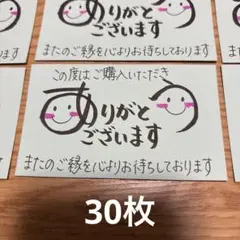 ありがとう
ございます
またのご縁を心よりお待ちしております
この度はご購入いただき
ありがとう
ございます
またのご縁を心よりお待ちしております
30枚